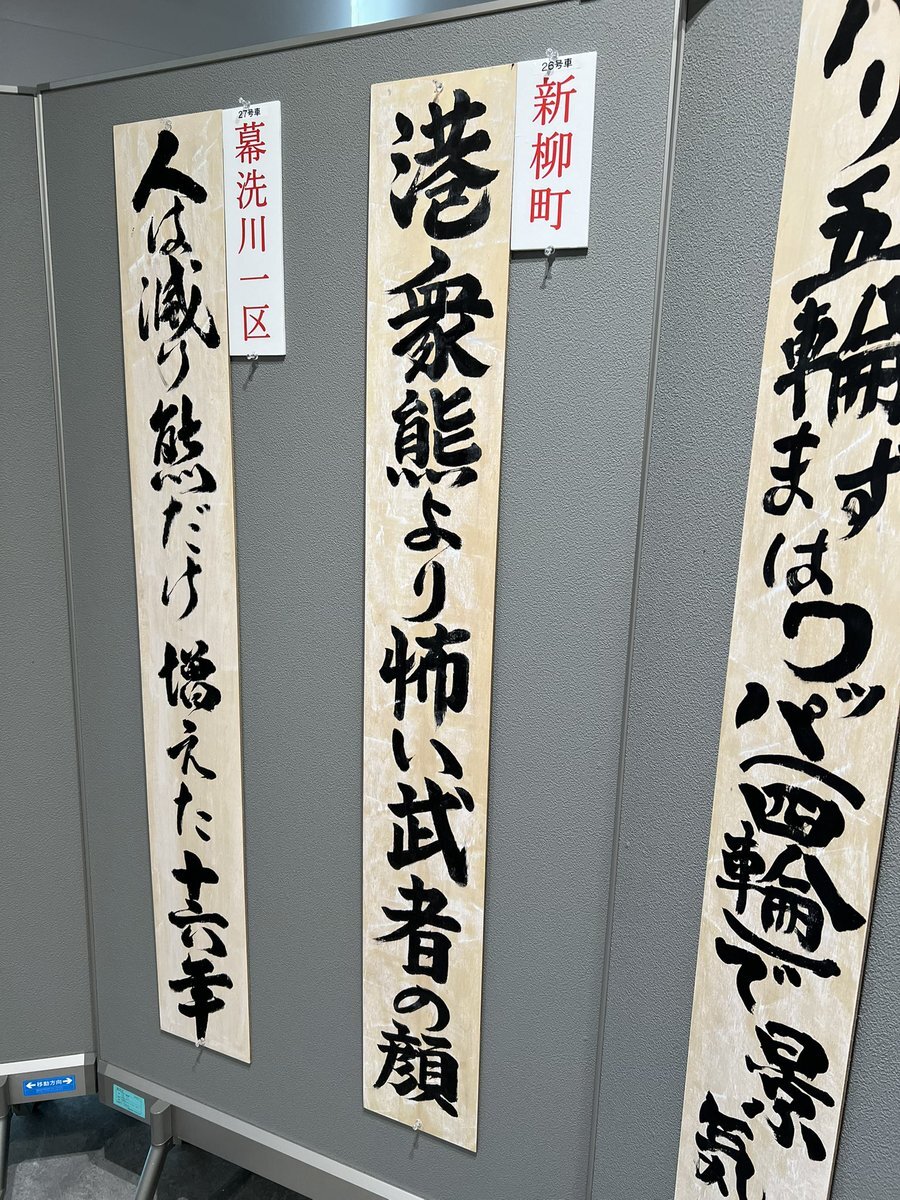 り五輪まずはワッパ(四輪)で景気
26号車
新柳町
港衆熊より怖い武者の顔
27号車
幕洗川一区
人は減り熊だけ増えた十六年
移動方向